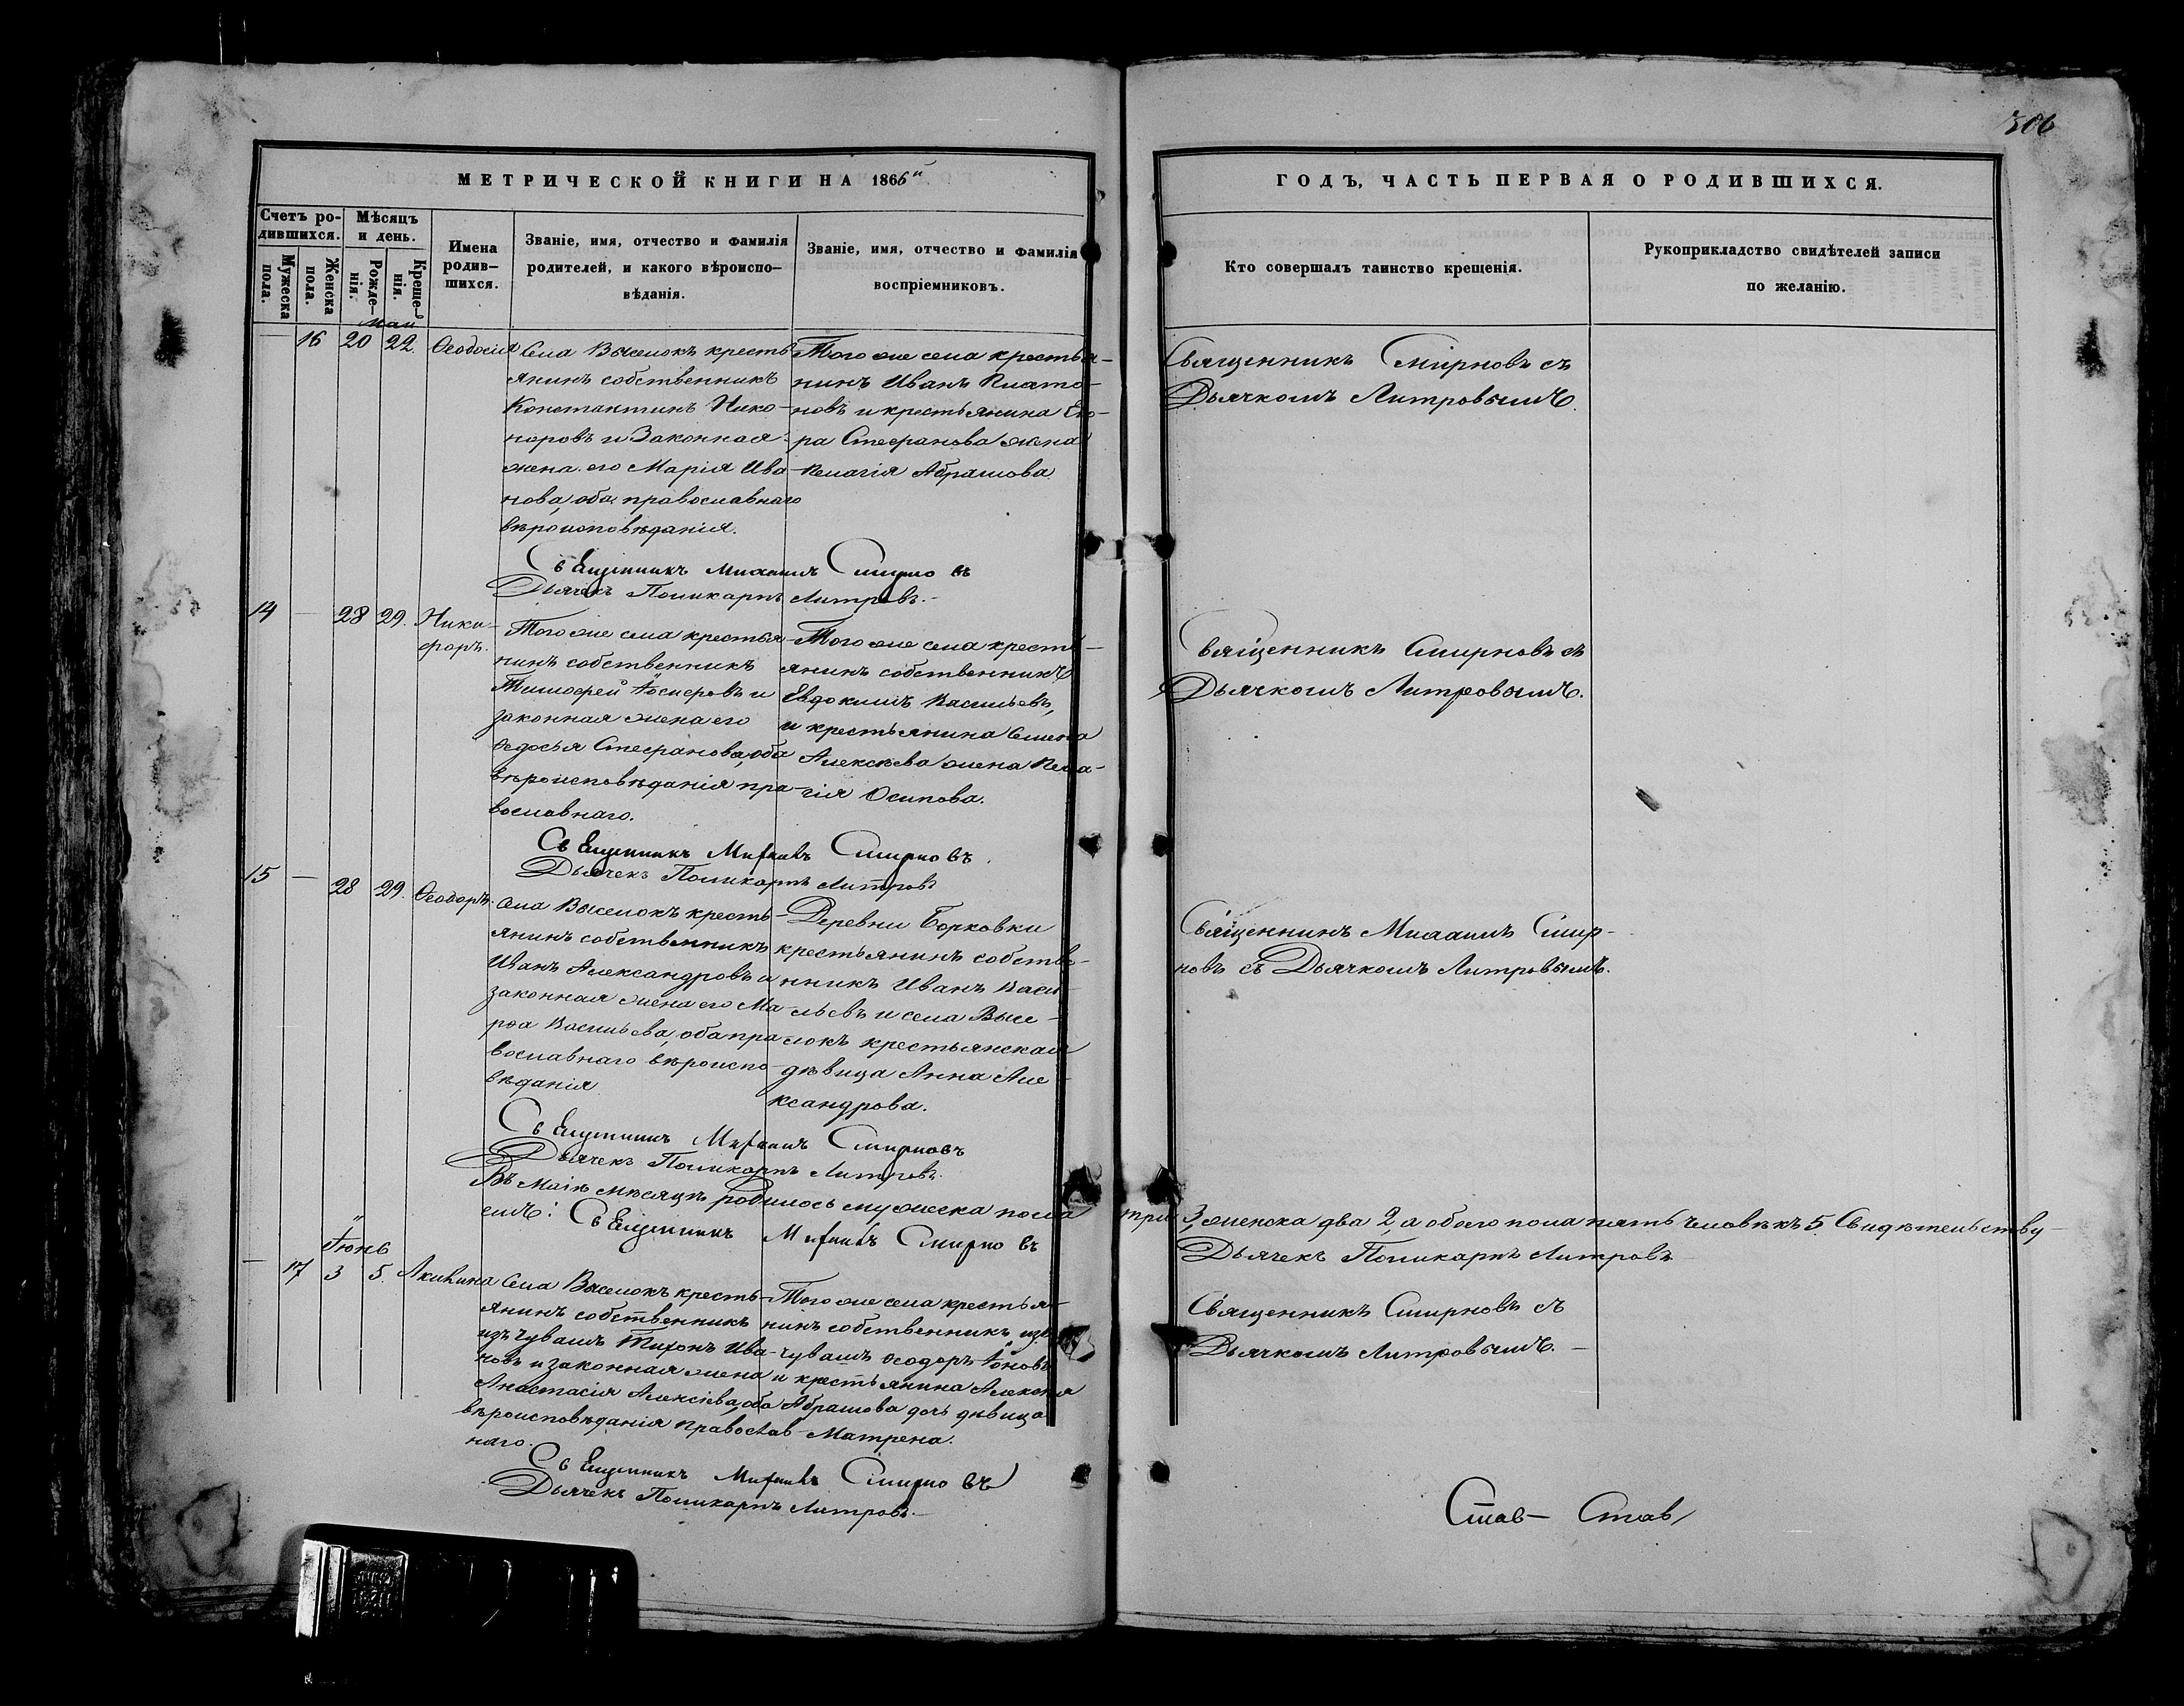 306
МЕТРИЧЕСКОЙ КНИГИ НА 1866й
ГОДЪ, ЧАСТЬ ПЕРВАЯ О РОДИВШИХСЯ.
Счетъ ро-
дившихся.
Мужеска
пола.
Женска
пола.
Мѣсяцъ
и день.
Рожде-
нія.
Креще-
нія.
Имена
родив-
шихся.
Званіе, имя, отчество и фамилія
родителей, и какого вѣроиспо-
вѣданія.
Званіе, имя, отчество и фамилія
воспріемниковъ.
Кто совершалъ таинство крещенія.
Рукоприкладство свидѣтелей записи
по желанію.
Маи
16 20 22. Ѳеодосія
Села Выселокъ кресть-
янинъ собственникъ
Константинъ Нико-
норовъ и Законная
жена его Марія Ива-
нова, оба православнаго
вѣроисповѣданія.
Того же села крестья-
нинъ Иванъ Плато-
новъ и крестьянина Его-
ра Стефанова жена
Пелагія Абрамова
Священникъ Смирновъ съ
Дьячкомъ Литровымъ.
Священникъ Михаилъ Смирновъ
Дьячекъ Поликарпъ Литровъ.
14 — 28 29. Ники-
форъ.
Того же села крестья-
нинъ собственникъ
Тимофей и
законная жена его
Ѳедосья Стефанова, оба
вѣроисповѣданія пра-
вославнаго.
Того же села кресть-
янинъ собственникъ
Евдокимъ Васильевъ,
и крестьянина Семена
Алексѣева жена Пела-
гія Осипова.
Священникъ Смирновъ съ
Дьячкомъ Литровымъ.
Священникъ Михаилъ Смирновъ.
Дьячекъ Поликарпъ Литровъ
15 — 28 29. Ѳеодоръ.
Села Выселокъ кресть-
янинъ собственникъ
Иванъ Александровъ и
законная жена его Ма-
рѳа Васильева, оба пра-
вославнаго вѣроиспо-
вѣданія
Деревни Борковки
крестьянинъ собстве-
нникъ Иванъ Васи-
льевъ и села Высе-
локъ крестьянская
дѣвица Анна Але-
ксандрова.
Священникъ Михаилъ Смир-
новъ съ Дьячкомъ Литровымъ.
Священникъ Михаилъ Смирновъ
Дьячекъ Поликарпъ Литровъ.
Въ Маіѣ мѣсяцѣ родилось мужеска пола три 3, женска два 2, а обоего пола пять человѣкъ 5. Свидѣтельству-
емъ: Священникъ Михаилъ Смирновъ
Дьячекъ Поликарпъ Литровъ
Іюнь
— 17 3 5. Акилина
Села Выселокъ кресть-
янинъ собственникъ
изъ чувашъ Тихонъ Ива-
новъ и законная жена
Анастасія Алексіева, оба
вѣроисповѣданія православ-
наго.
Того же села крестья-
нинъ собственникъ изъ
чувашъ Ѳеодоръ Іоновъ
и крестьянина Алексѣя
Абрамова дочь дѣвица
Матрена.
Священникъ Смирновъ съ
Дьячкомъ Литровымъ. —
Священникъ Михаилъ Смирновъ
Дьячекъ Поликарпъ Литровъ.
Став— Став